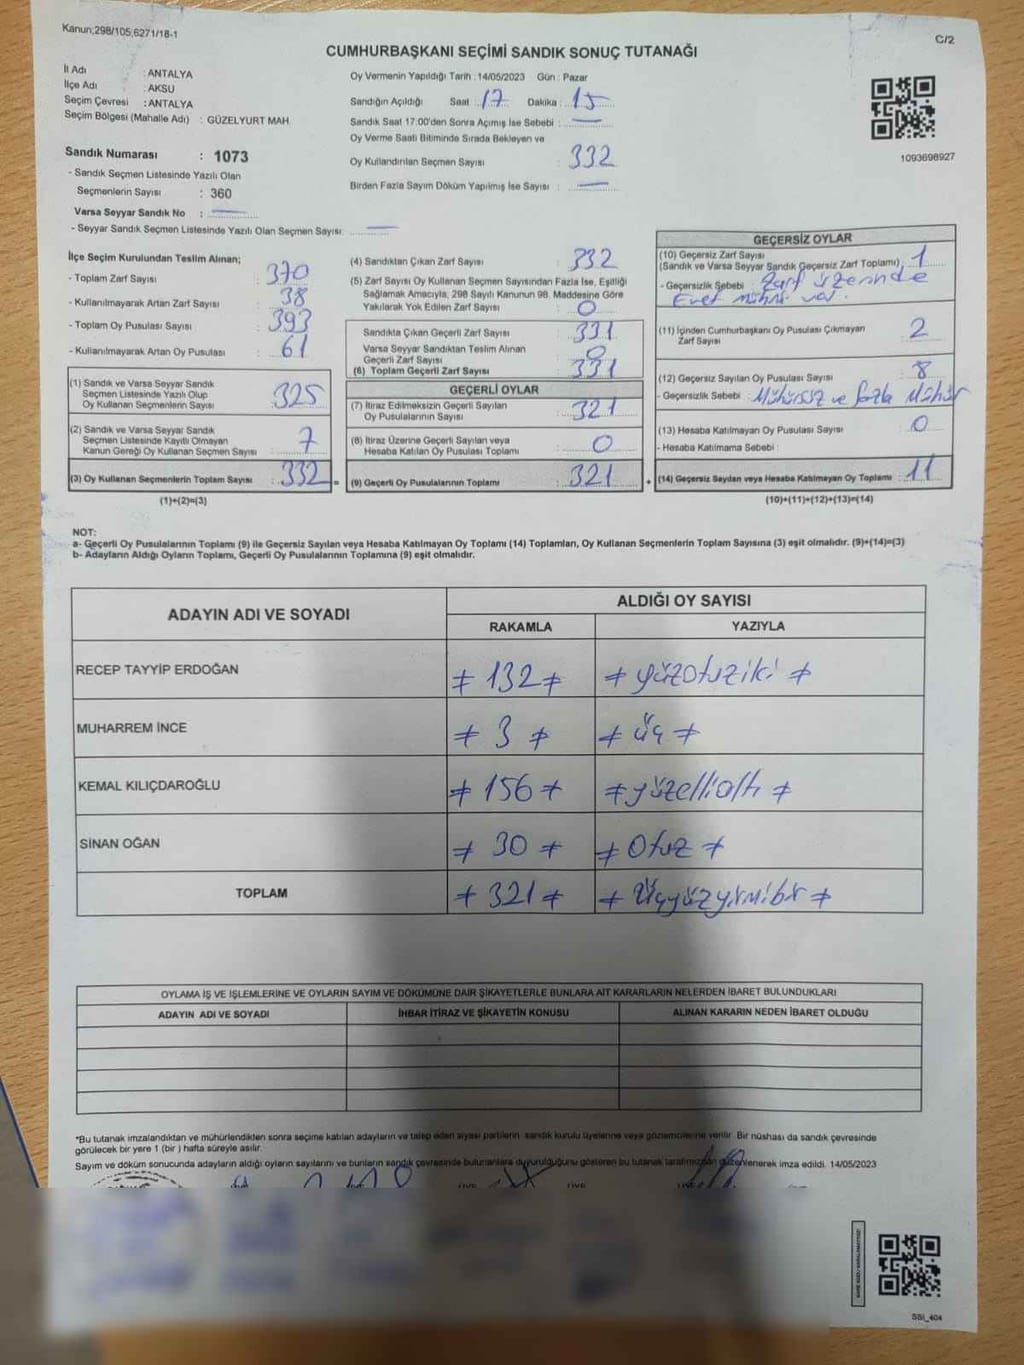 Kanun;298/105;6271/18-1
C/2
CUMHURBAŞKANI SEÇİMİ SANDIK SONUÇ TUTANAĞI
İl Adı : ANTALYA
İlçe Adı : AKSU
Seçim Çevresi : ANTALYA
Seçim Bölgesi (Mahalle Adı) : GÜZELYURT MAH.
Sandık Numarası : 1073
- Sandık Seçmen Listesinde Yazılı Olan
Seçmenlerin Sayısı : 360
Varsa Seyyar Sandık No :
- Seyyar Sandık Seçmen Listesinde Yazılı Olan Seçmen Sayısı:
Oy Vermenin Yapıldığı Tarih : 14/05/2023 Gün : Pazar
Sandığın Açıldığı Saat : 17 Dakika : 15
Sandık Saat 17:00'den Sonra Açımış İse Sebebi :
Oy Verme Saati Bitiminde Sırada Bekleyen ve
Oy Kullandırılan Seçmen Sayısı : 332
Birden Fazla Sayım Döküm Yapılmış İse Sayısı :
1093698927
İlçe Seçim Kurulundan Teslim Alınan;
- Toplam Zarf Sayısı : 370
- Kullanılmayarak Artan Zarf Sayısı : 38
- Toplam Oy Pusulası Sayısı : 393
- Kullanılmayarak Artan Oy Pusulası : 61
(1) Sandık ve Varsa Seyyar Sandık
Seçmen Listesinde Yazılı Olup
Oy Kullanan Seçmenlerin Sayısı : 325
(2) Sandık ve Varsa Seyyar Sandık
Seçmen Listesinde Kayıtlı Olmayan
Kanun Gereği Oy Kullanan Seçmen Sayısı : 7
(3) Oy Kullanan Seçmenlerin Toplam Sayısı : 332 =
(1)+(2)=(3)
(4) Sandıktan Çıkan Zarf Sayısı : 332
(5) Zarf Sayısı Oy Kullanan Seçmen Sayısından Fazla İse, Eşitliği
Sağlamak Amacıyla, 298 Sayılı Kanunun 98. Maddesine Göre
Yakılarak Yok Edilen Zarf Sayısı : 0
Sandıkta Çıkan Geçerli Zarf Sayısı : 331
Varsa Seyyar Sandıktan Teslim Alınan
Geçerli Zarf Sayısı : 0
(6) Toplam Geçerli Zarf Sayısı : 331
GEÇERLİ OYLAR
(7) İtiraz Edilmeksizin Geçerli Sayılan
Oy Pusulalarının Sayısı : 321
(8) İtiraz Üzerine Geçerli Sayılan veya
Hesaba Katılan Oy Pusulası Toplamı : 0
(9) Geçerli Oy Pusulalarının Toplamı : 321 +
GEÇERSİZ OYLAR
(10) Geçersiz Zarf Sayısı
(Sandık ve Varsa Seyyar Sandık Geçersiz Zarf Toplamı) : 1
- Geçersizlik Sebebi : Zarf üzerinde
Evet mührü var.
(11) İçinden Cumhurbaşkanı Oy Pusulası Çıkmayan
Zarf Sayısı : 2
(12) Geçersiz Sayılan Oy Pusulası Sayısı : 8
- Geçersizlik Sebebi : Mühürsüz ve fazla Mühür
(13) Hesaba Katılmayan Oy Pusulası Sayısı : 0
- Hesaba Katılmama Sebebi :
(14) Geçersiz Sayılan veya Hesaba Katılmayan Oy Toplamı : 11
(10)+(11)+(12)+(13)=(14)
NOT:
a- Geçerli Oy Pusulalarının Toplamı (9) ile Geçersiz Sayılan veya Hesaba Katılmayan Oy Toplamı (14) Toplamları, Oy Kullanan Seçmenlerin Toplam Sayısına (3) eşit olmalıdır. (9)+(14)=(3)
b- Adayların Aldığı Oyların Toplamı, Geçerli Oy Pusulalarının Toplamına (9) eşit olmalıdır.
ADAYIN ADI VE SOYADI
ALDIĞI OY SAYISI
RAKAMLA YAZIYLA
RECEP TAYYİP ERDOĞAN ≠ 132 ≠ ≠ yüzotuziki ≠
MUHARREM İNCE ≠ 3 ≠ ≠ üç ≠
KEMAL KILIÇDAROĞLU ≠ 156 ≠ ≠ yüzellialtı ≠
SİNAN OĞAN ≠ 30 ≠ ≠ Otuz ≠
TOPLAM ≠ 321 ≠ ≠ Üçyüzyirmibir ≠
OYLAMA İŞ VE İŞLEMLERİNE VE OYLARIN SAYIM VE DÖKÜMÜNE DAİR ŞİKAYETLERLE BUNLARA AİT KARARLARIN NELERDEN İBARET BULUNDUKLARI
ADAYIN ADI VE SOYADI İHBAR İTİRAZ VE ŞİKAYETİN KONUSU ALINAN KARARIN NEDEN İBARET OLDUĞU
*Bu tutanak imzalandıktan ve mühürlendikten sonra seçime katılan adayların ve talep eden siyasi partilerin sandık kurulu üyelerine veya gözlemcilerine verilir. Bir nüshası da sandık çevresinde
görülecek bir yere 1 (bir ) hafta süreyle asılır.
Sayım ve döküm sonucunda adayların aldığı oyların sayılarını ve bunların sandık çevresinde bulunanlara duyurulduğunu gösteren bu tutanak tarafımızdan düzenlenerek imza edildi. 14/05/2023
SSI_404